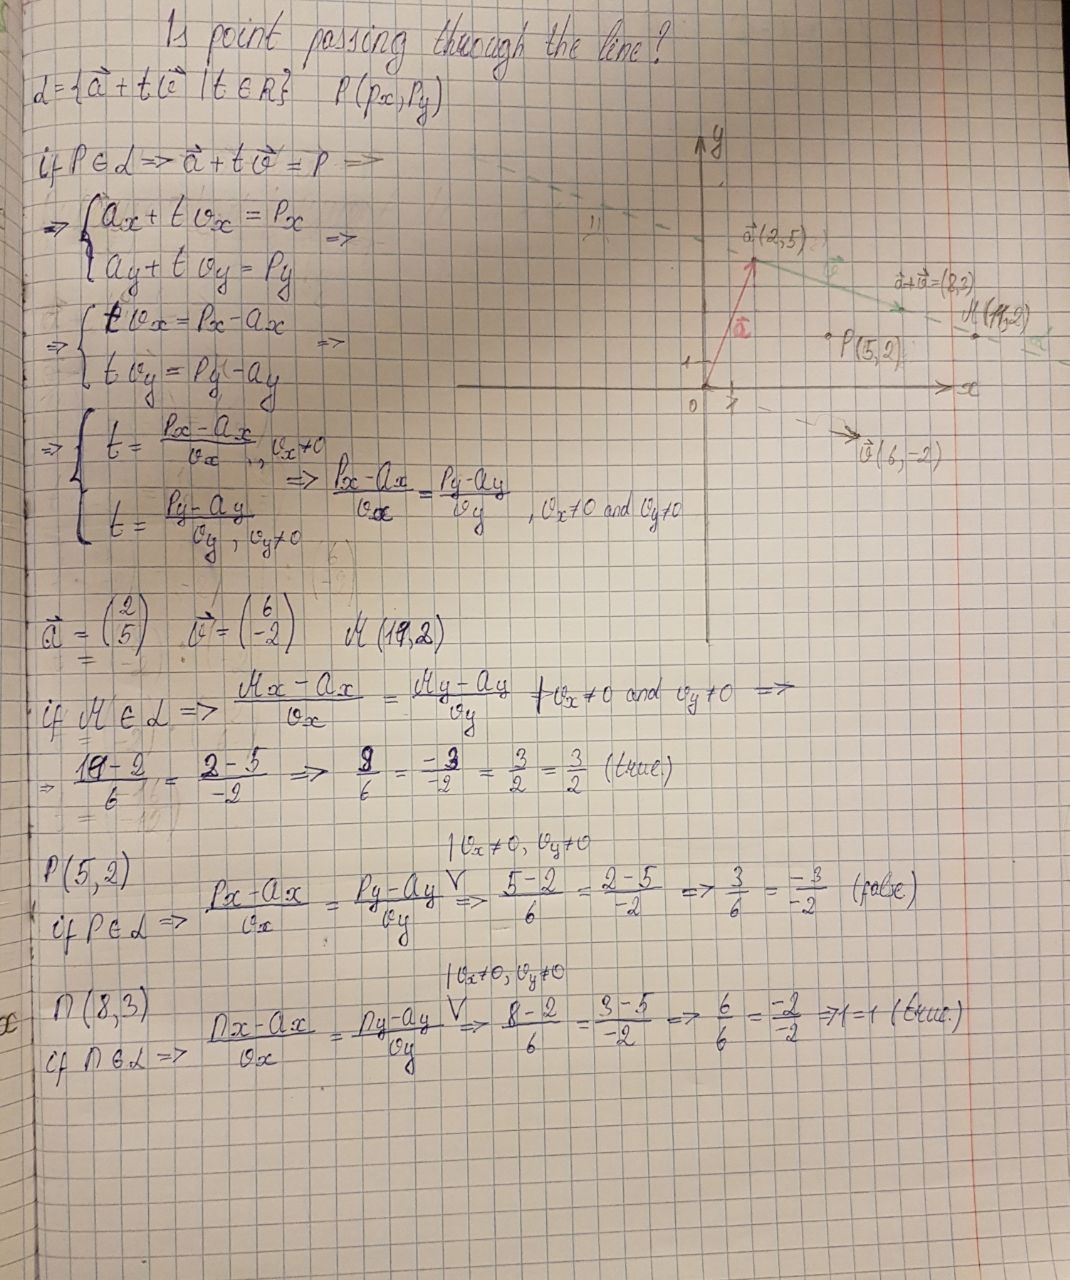 Is point passing through the line?
L = {a⃗ + t v⃗ | t ∈ R}   P(Px, Py)
if P ∈ L => a⃗ + t v⃗ = P =>
=> { ax + t vx = Px
ay + t vy = Py =>
=> { t vx = Px - ax
t vy = Py - ay =>
=> { t = (Px - ax)/vx, vx ≠ 0
t = (Py - ay)/vy, vy ≠ 0
=> (Px - ax)/vx = (Py - ay)/vy, vx ≠ 0 and vy ≠ 0
y
a⃗(2,5)
v⃗
a⃗+v⃗=(8,3)
M(11,2)
a⃗
P(5,2)
L
1
0 1 x
v⃗(6,-2)
a⃗ = (2 5)   v⃗ = (6 -2)   M(11,2)
if M ∈ L => (Mx - ax)/vx = (My - ay)/vy | vx ≠ 0 and vy ≠ 0 =>
=> (11 - 2)/6 = (2 - 5)/-2 => 9/6 = -3/-2 = 3/2 = 3/2 (true.)
P(5,2)
| vx ≠ 0, vy ≠ 0
if P ∈ L => (Px - ax)/vx = (Py - ay)/vy => (5 - 2)/6 = (2 - 5)/-2 => 3/6 = -3/-2 (false)
П(8,3)
| vx ≠ 0, vy ≠ 0
if П ∈ L => (Пx - ax)/vx = (Пy - ay)/vy => (8 - 2)/6 = (3 - 5)/-2 => 6/6 = -2/-2 => 1 = 1 (true.)
x